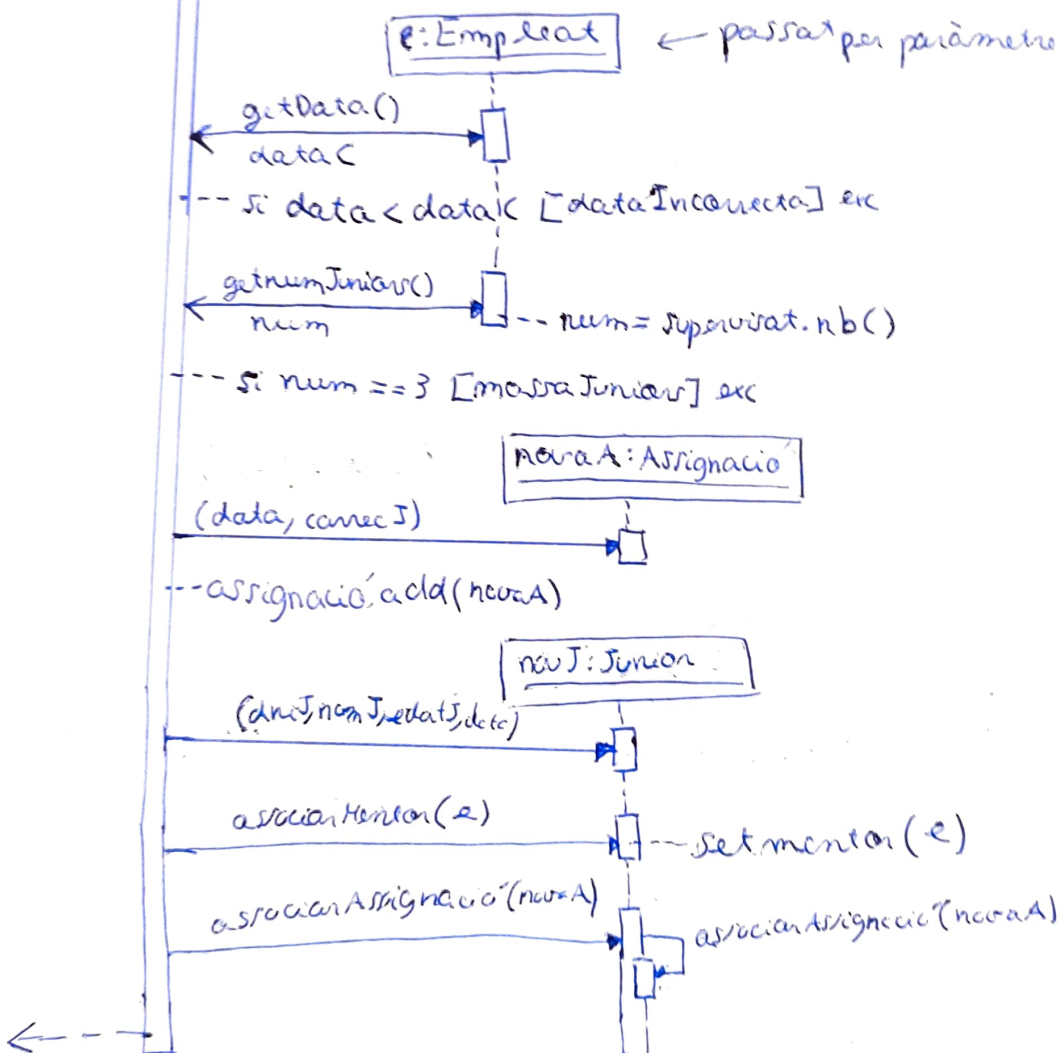 e:Empleat
← passat per paràmetre
getData()
dataC
si data < dataC [dataIncorrecta] exc
getnumJuniors()
num
num = supervisat.nb()
si num == 3 [massaJuniors] exc
novaA:Assignació
(data, carrecJ)
assignació.add(novaA)
nouJ:Junior
(dniJ, nomJ, edatJ, data)
associarMentor(e)
setmentor(e)
associarAssignació(novaA)
associarAssignació(novaA)